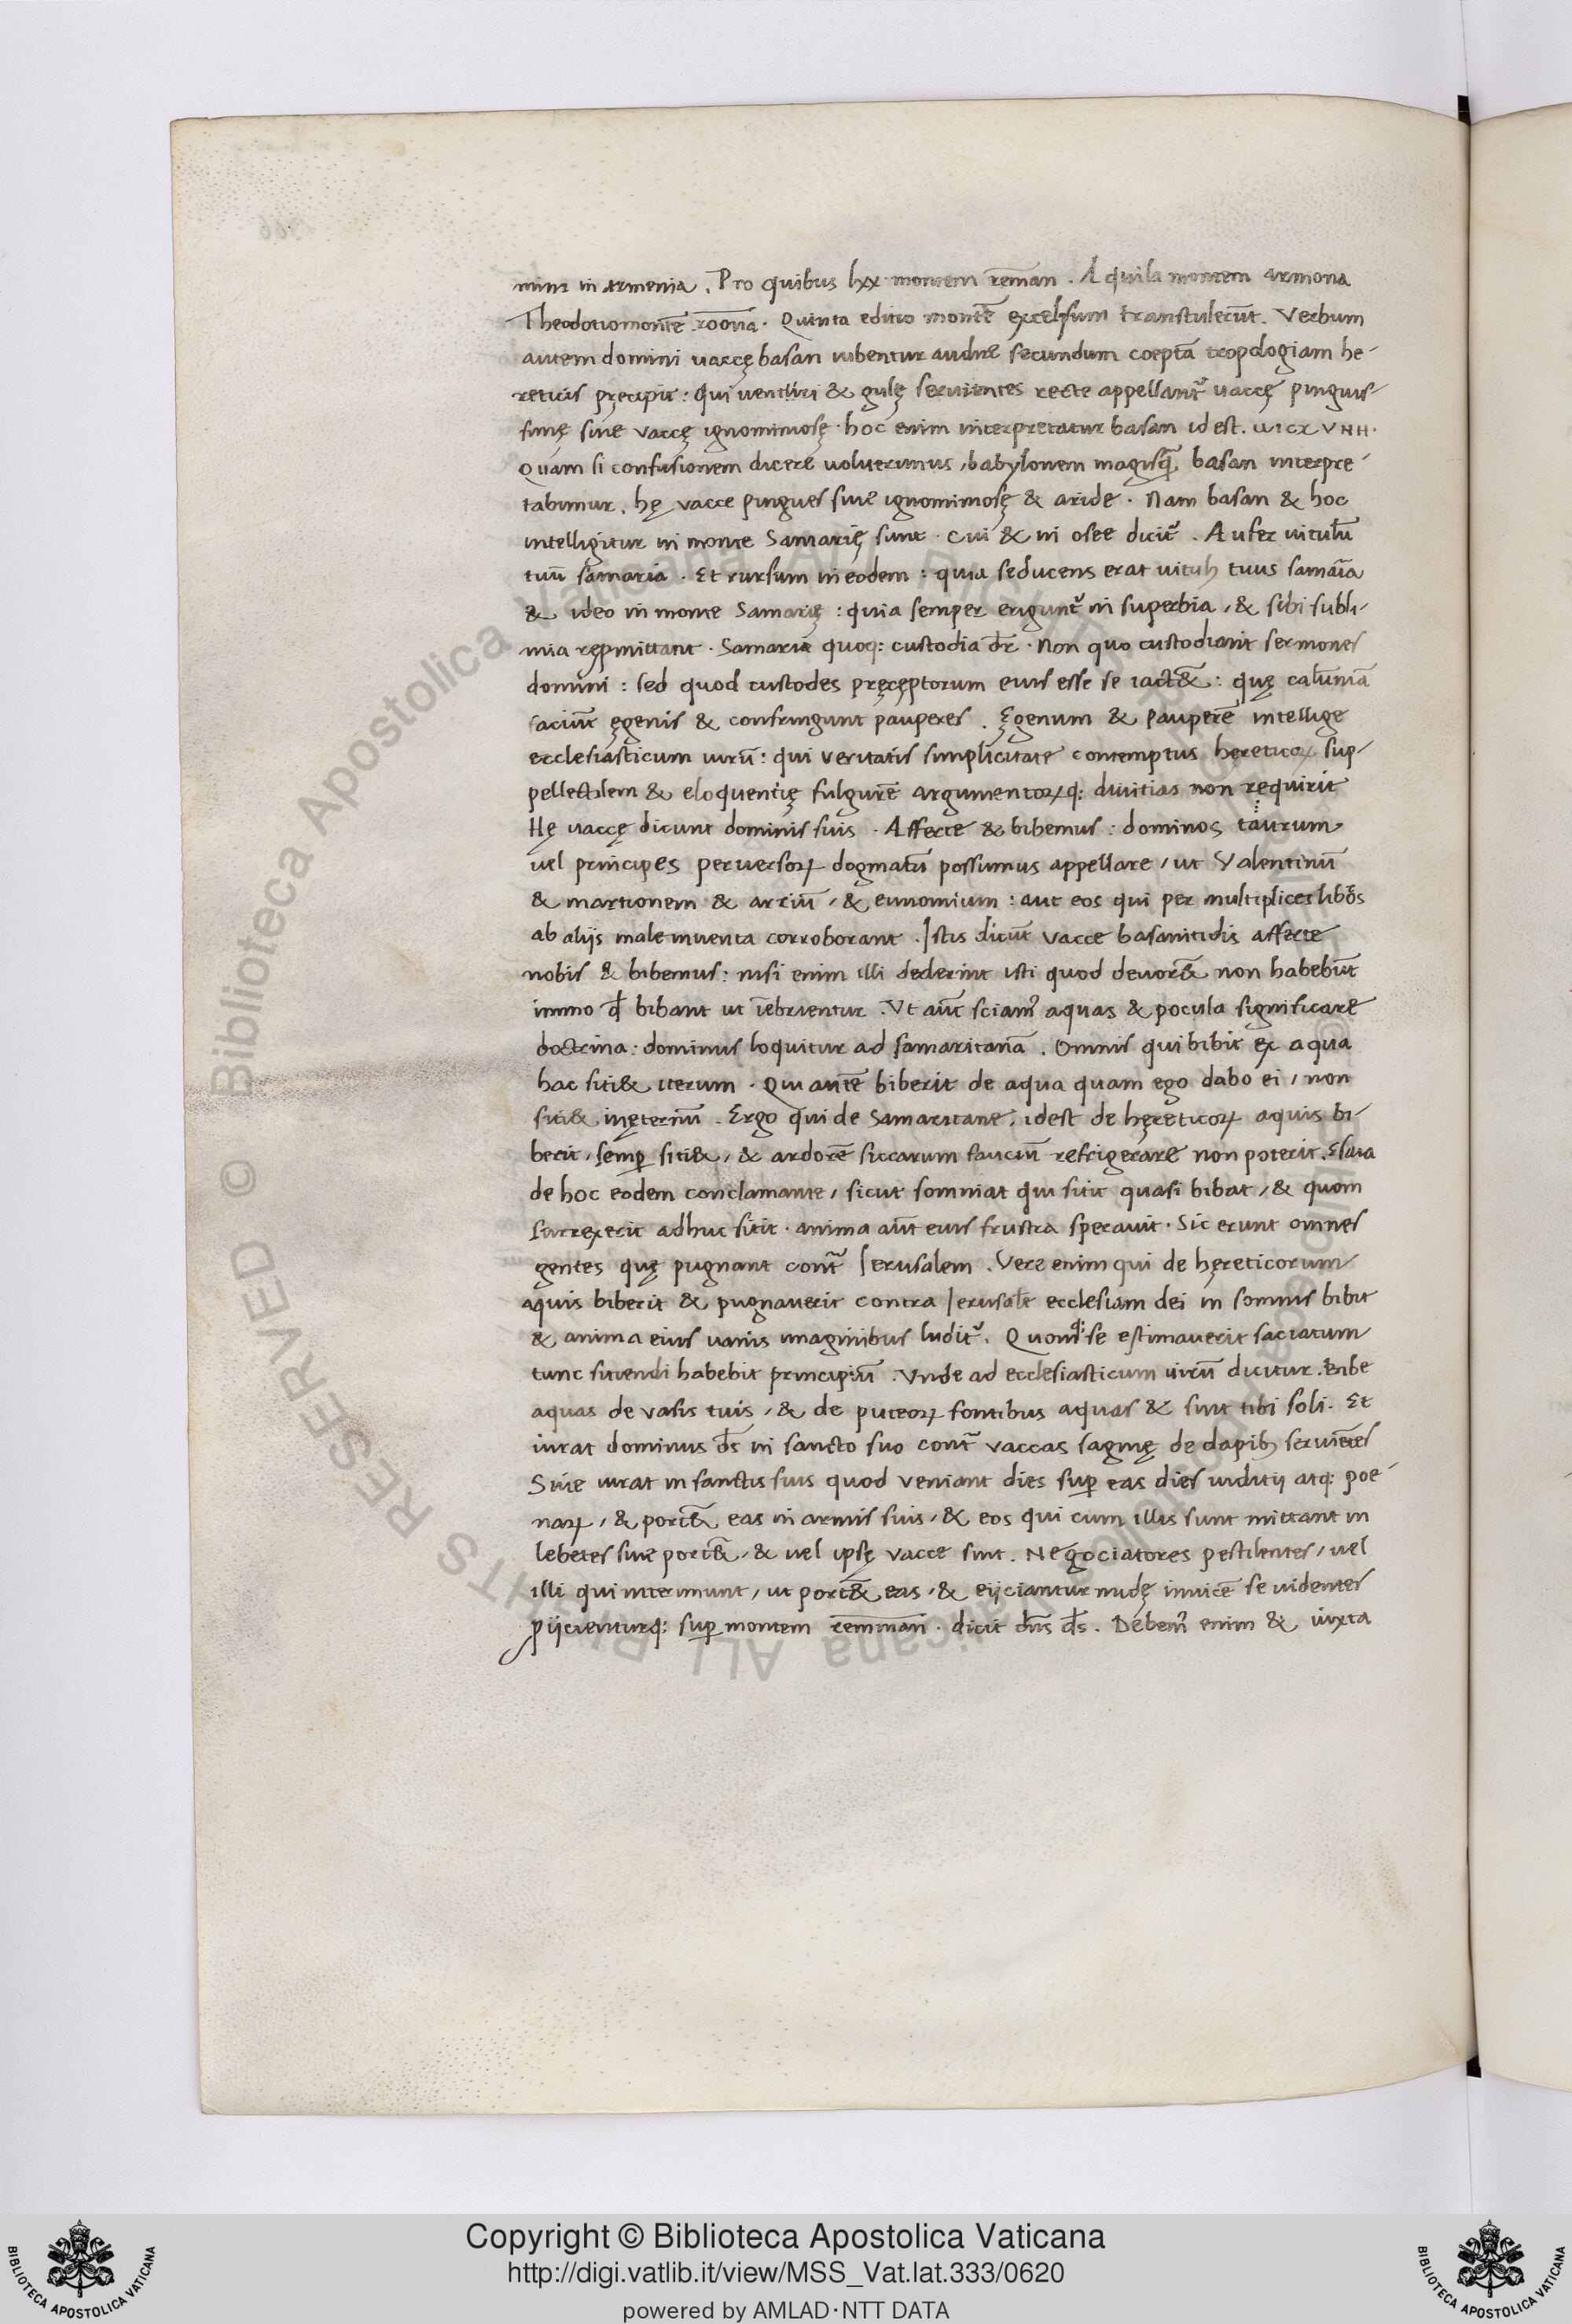 mini in armenia. Pro quibus lxx montem rem̄an. Aquila montem armona
Theodotio montē roōna. Quinta editio montē excelsum transtulerūt. Verbum
autem domini vaccę basan iubentur audire secundum coeptā tropologiam he-
reticis pręcipit: qui ventri & gulę servientes recte appellantᷣ vaccę pinguis-
simę sive vaccę ignominiosę. hoc enim interpretatur basan id est.
Quam si confusionem dicere voluerimus, babylonem magisꝗ̄ basan interpre-
tabimur. hę vacce pingues sive ignominiosę & aride. Nam basan & hoc
intelligitur in monte Samarię sunt. Cui & in osee dicitᷣ. Aufer vitulū
tuū samaria. Et rursum in eodem: quia seducens erat vitulꝰ tuus samaīa
& ideo in monte Samarię: quia semper eriguntᷣ in superbia, & sibi subli-
mia repmittant. Samaria quoq: custodia dr̄. Non quo custodiant sermones
domini: sed quod custodes pręcęptorum eius esse se iact&: quę calūniā
faciūt ęgenis & confringunt pauperes. Ęgenum & pauperē intellige
ecclesiasticum virū: qui veritatis simplicitate contemptus hęreticoꝝ sup-
pellectilem & eloquentię fulgurē argumentoꝝq: divitias non requirit
Hę vaccę dicunt dominis suis. Afferte & bibemus: dominos taurum
vel principes perversoꝝ dogmatū possumus appellare, ut Valentinū
& martionem & arriū, & eunomium: aut eos qui per multiplices libōs
ab alijs male inventa corroborant. Istis dicūt vacce basanitidis afferte
nobis & bibemus: nisi enim illi dederint isti quod devor& non habebūt
immo ꝗd bibant ut īebrientur. Ut aūt sciamꝰ aquas & pocula significare
doctrina: dominus loquitur ad samaritanā. Omnis qui bibit ex aqua
hac siti& iterum. Qui autē biberit de aqua quam ego dabo ei, non
siti& inęternū. Ergo qui de Samaritane, idest de hęreticoꝝ aquis bi-
berit, semꝑ siti&, & ardorē siccarum fauciū refrigerare non poterit. Esaia
de hoc eodem conclamante, sicut somniat qui sitit quasi bibat, & quom
surrexerit adhuc sitit. anima aūt eius frustra speravit. Sic erunt omnes
gentes quę pugnant contᷓ Ierusalem. Vere enim qui de hęreticorum
aquis biberit & pugnaverit contra Ierusalē ecclesiam dei in somnis bibit
& anima eius vanis imaginibus luditᷣ. Quomꝗ: se estimaverit saciatum
tunc sitiendi habebit principiū. Unde ad ecclesiasticum virū dicitur. Bibe
aquas de vasis tuis, & de puteoꝝ fontibus aquas & sint tibi soli. Et
iurat dominus ds̄ in sancto suo contᷓ vaccas sagmę de dapibꝰ serviētes
Sive iurat in sanctis suis quod veniant dies suꝑ eas dies iuditij atq: poe-
naꝝ, & port& eas in armis suis, & eos qui cum illis sunt mittant in
lebetes sive port&, & vel ipsę vacce sint. Negociatores pestilentes, vel
illi qui interimunt, ut port& eas, & eijciantur nudę invicē se videntes
ꝓijcienturq: suꝑ montem remman. dicit dn̄s ds̄. Debemꝰ enim & iuxta
Copyright © Biblioteca Apostolica Vaticana
http://digi.vatlib.it/view/MSS_Vat.lat.333/0620
powered by AMLAD·NTT DATA
BIBLIOTECA APOSTOLICA VATICANA
BIBLIOTECA APOSTOLICA VATICANA